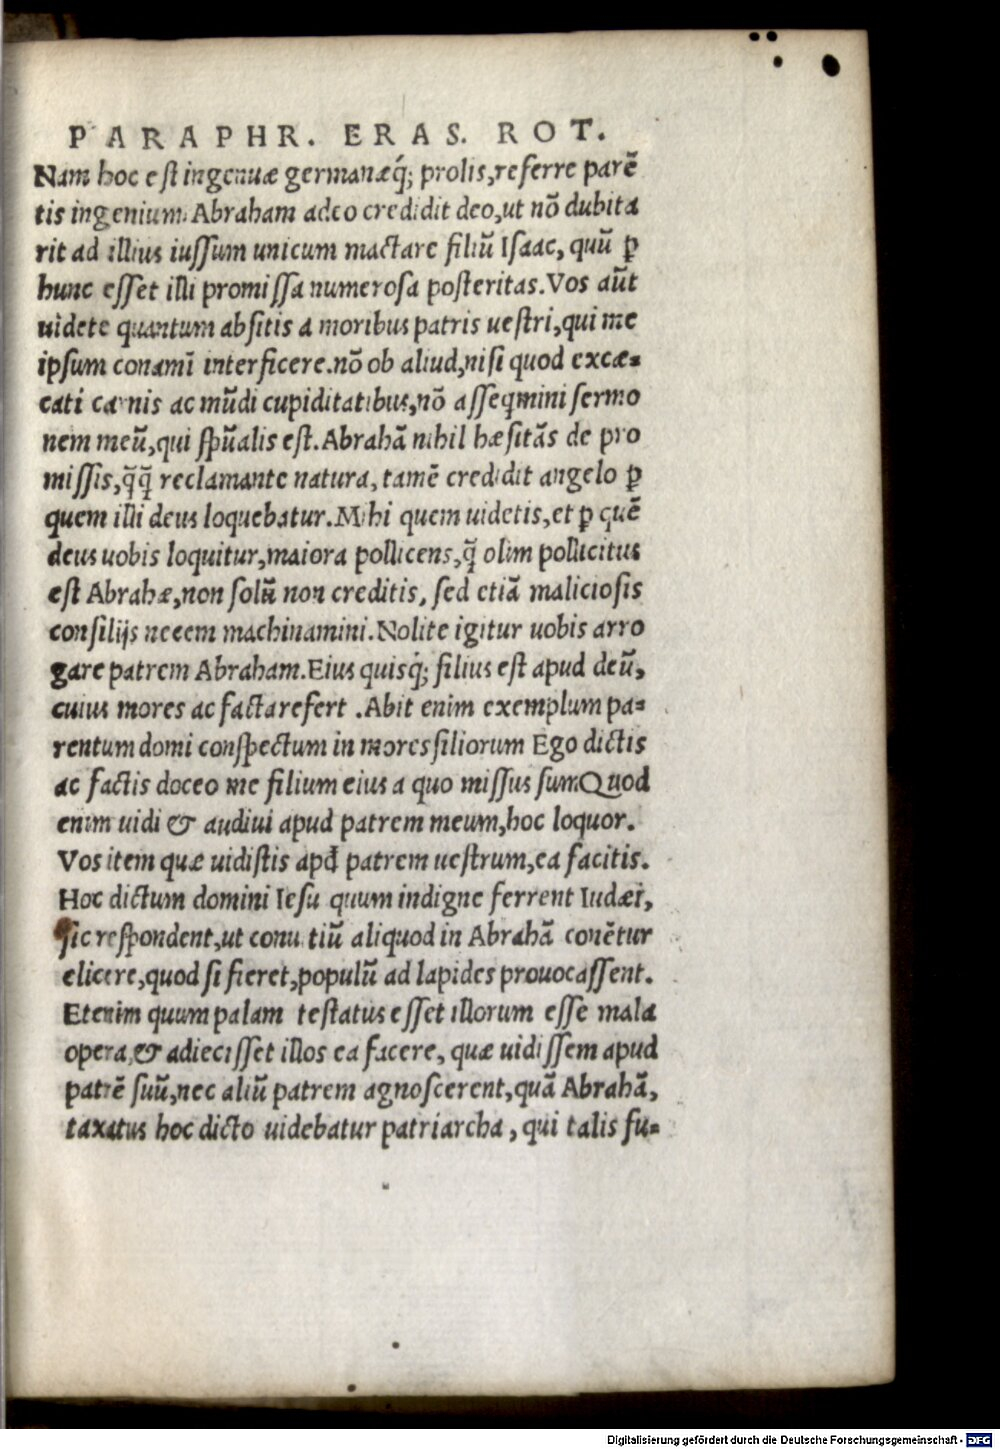 PARAPHR. ERAS. ROT.
Nam hoc est ingenuæ germanæq́; prolis, referre parē
tis ingenium. Abraham adeo credidit deo, ut nō dubita
rit ad illius iussum unicum mactare filiū Isaac, quū ꝑ
hunc esset illi promissa numerosa posteritas. Vos aūt
uidete quantum absitis a moribus patris uestri, qui me
ipsum conamī interficere. nō ob aliud, nisi quod excæ-
cati carnis ac mūdi cupiditatibus, nō asseqmini sermo
nem meū, qui spūalis est. Abrahā nihil hæsitās de pro
missis, q̄q̄ reclamante natura, tamē credidit angelo ꝑ
quem illi deus loquebatur. Mihi quem uidetis, et ꝑ quē
deus uobis loquitur, maiora pollicens, q̄ olim pollicitus
est Abrahæ, non solū non creditis, sed etiā maliciosis
consilijs necem machinamini. Nolite igitur uobis arro
gare patrem Abraham. Eius quisq́; filius est apud deū,
cuius mores ac facta refert . Abit enim exemplum pa-
rentum domi conspectum in mores filiorum Ego dictis
ac factis doceo me filium eius a quo missus sum. Quod
enim uidi & audiui apud patrem meum, hoc loquor.
Vos item quæ uidistis apd̄ patrem uestrum, ea facitis.
Hoc dictum domini Iesu quum indigne ferrent Iudæi,
sic respondent, ut conuitiū aliquod in Abrahā conētur
elicere, quod si fieret, populū ad lapides prouocassent.
Etenim quum palam testatus esset illorum esse mala
opera, & adiecisset illos ea facere, quæ uidissem apud
patrē suū, nec aliū patrem agnoscerent, quā Abrahā,
taxatus hoc dicto uidebatur patriarcha, qui talis fu-
Digitalisierung gefördert durch die Deutsche Forschungsgemeinschaft - DFG